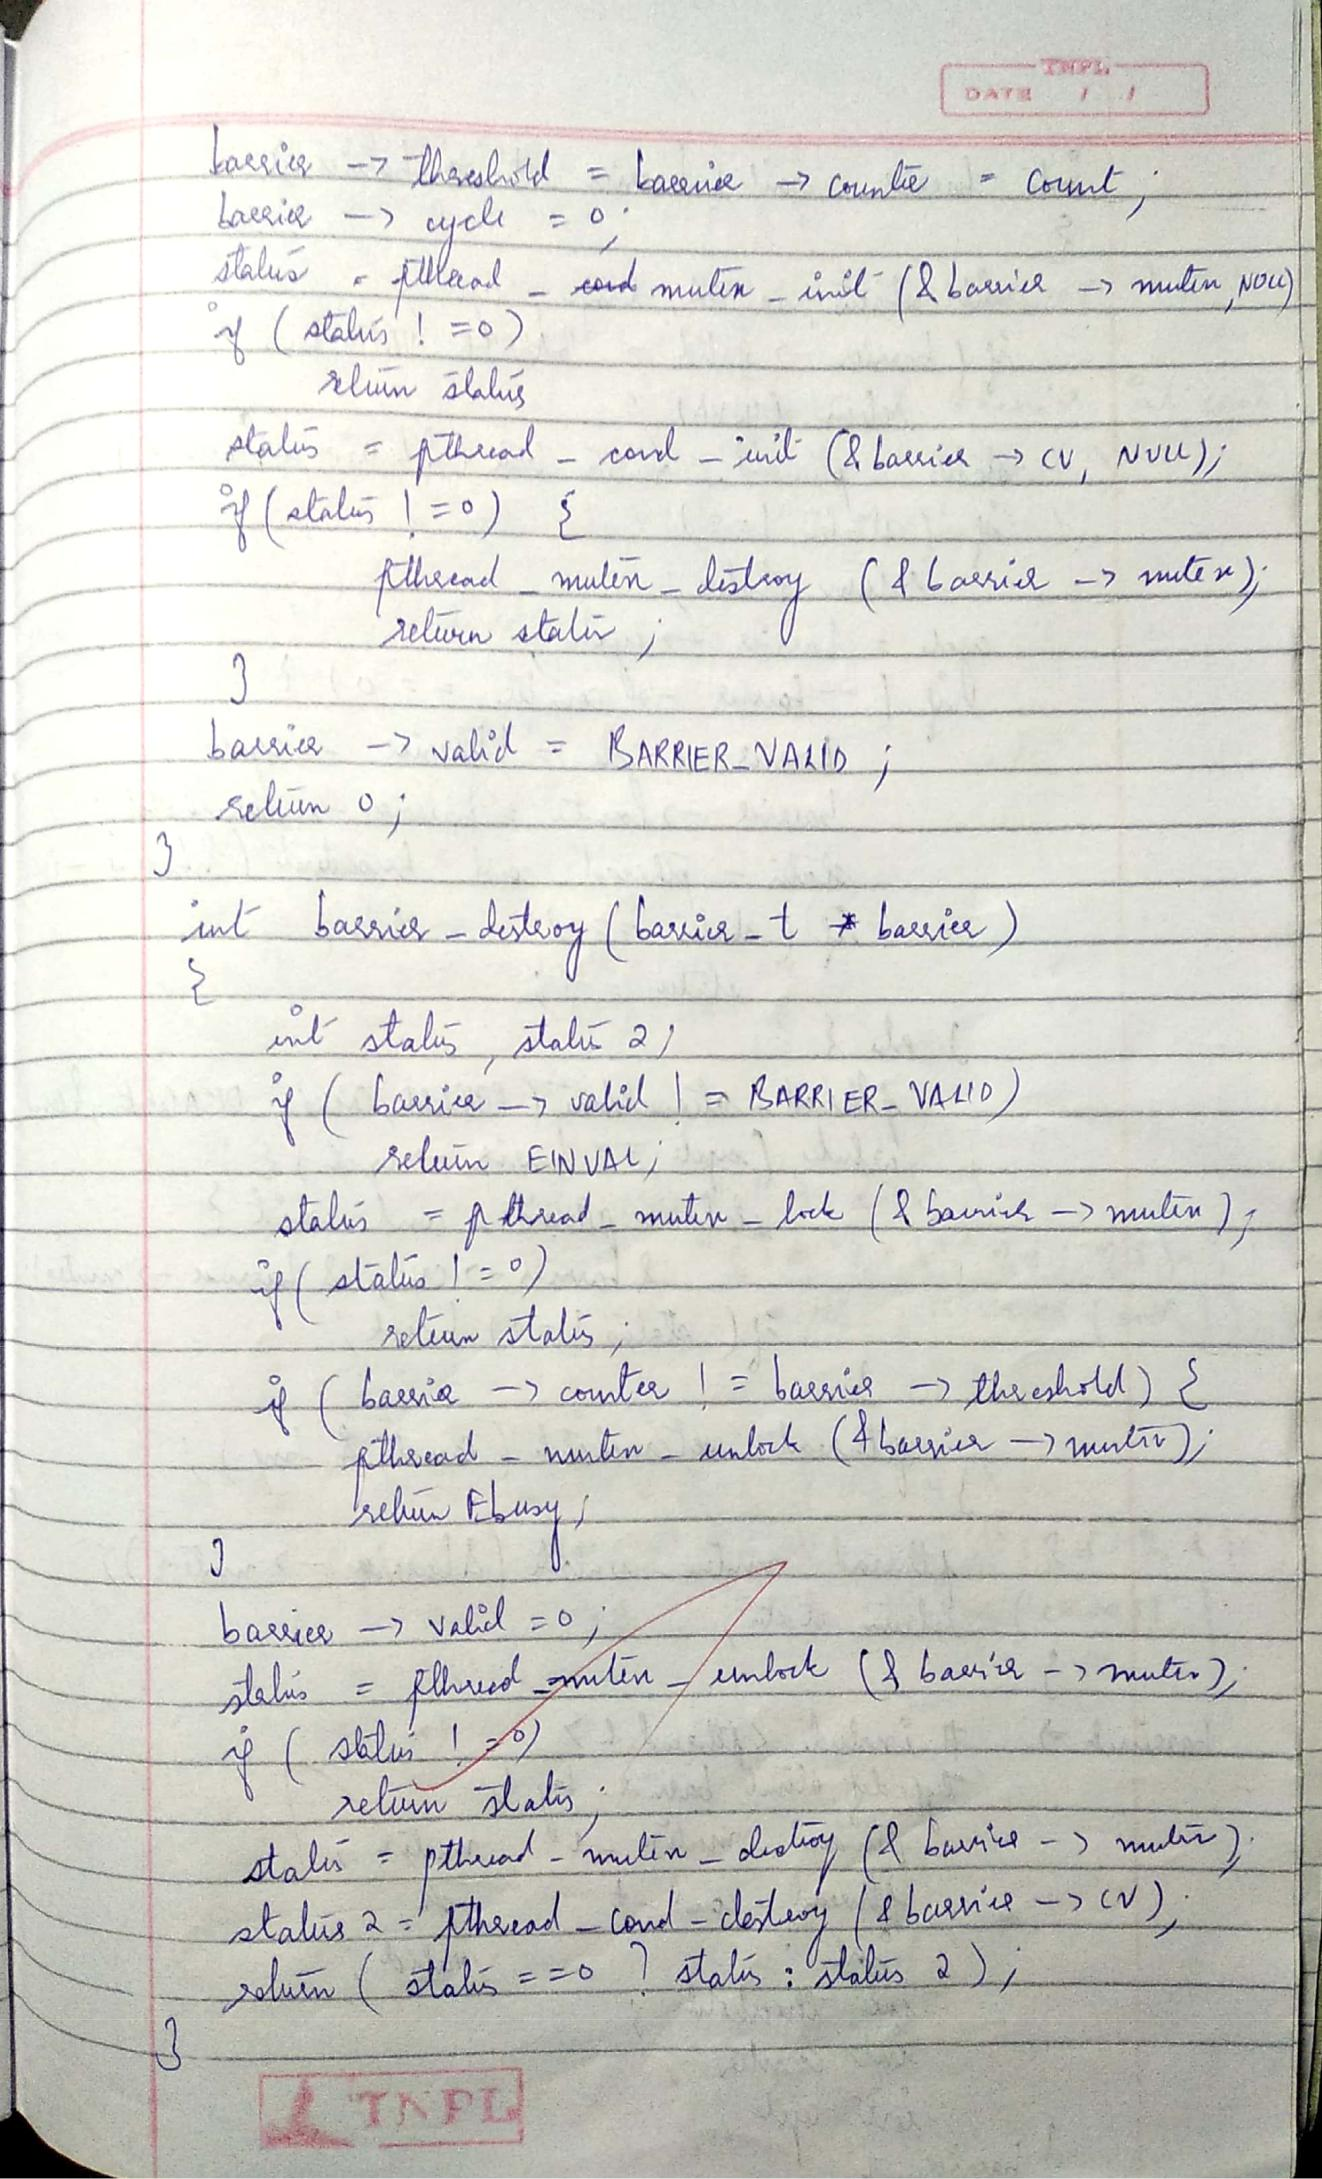 TNPL
DATE / /
barrier -> threshold = barrier -> counter = count;
barrier -> cycle = 0;
status = pthread - cond mutex - init (& barrier -> mutex, NULL)
if ( status ! =0)
return status
status = pthread - cond - init (& barrier -> CV, NULL);
if ( status ! =0) {
pthread - mutex - destroy (& barrier -> mutex);
return status ;
}
barrier -> valid = BARRIER_VALID ;
return 0 ;
}
int barrier - destroy ( barrier - t * barrier )
{
int status , status 2 ;
if ( barrier -> valid ! = BARRIER_ VALID)
return EINVAL;
status = pthread - mutex - lock (& barrier -> mutex ) ;
if ( status ! =0)
return status ;
if ( barrier -> counter ! = barrier -> threshold) {
pthread - mutex - unlock (& barrier -> mutex);
return Ebusy ;
}
barrier -> valid =0 ;
status = pthread - mutex - unlock (& barrier -> mutex);
if ( status ! =0)
return status ;
status = pthread - mutex - destroy (& barrier -> mutex);
status 2 = pthread - cond - destroy (& barrier -> CV);
return ( status ==0 ? status : status 2 ) ;
}
TNPL